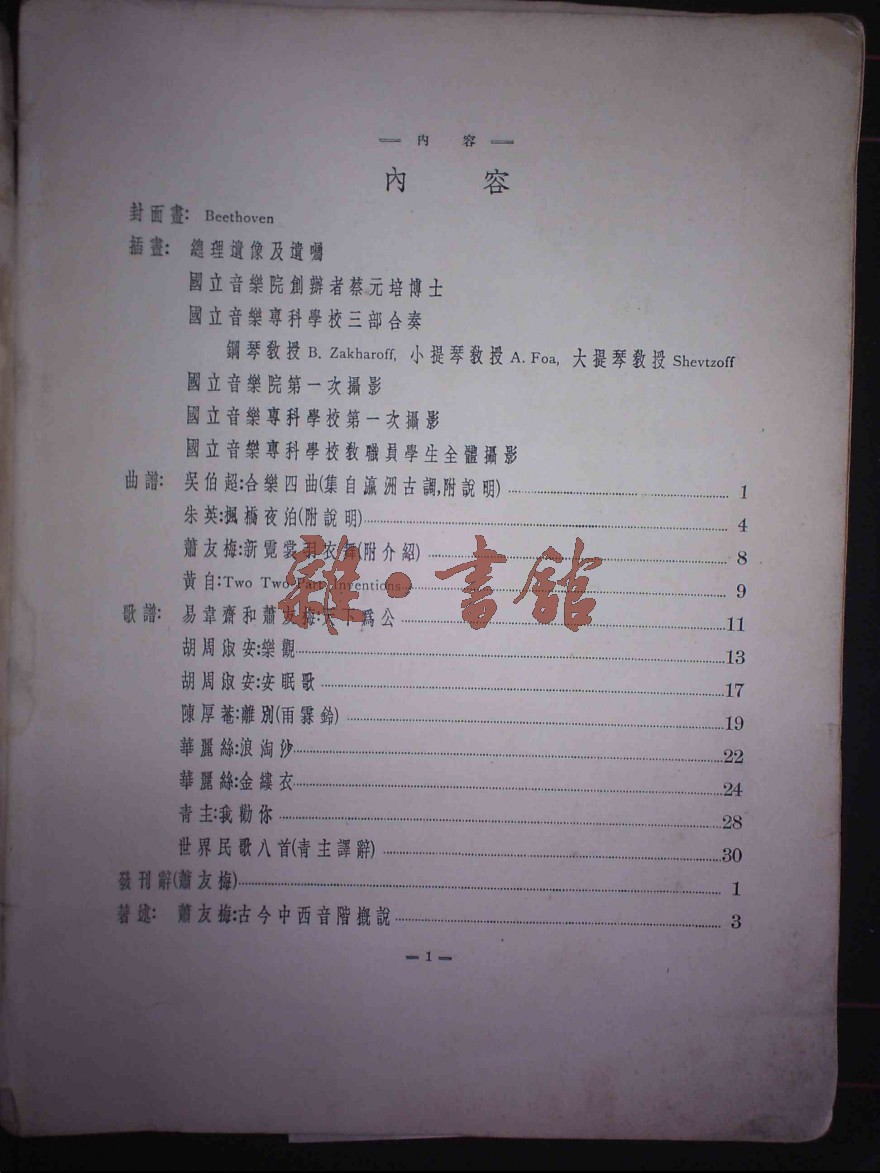 — 內 容 —
內 容
封面畫: Beethoven
插畫: 總理遺像及遺囑
國立音樂院創辦者蔡元培博士
國立音樂專科學校三部合奏
鋼琴教授 B. Zakharoff, 小提琴教授 A. Foa, 大提琴教授 Shevtzoff
國立音樂院第一次攝影
國立音樂專科學校第一次攝影
國立音樂專科學校教職員學生全體攝影
曲譜: 吳伯超:合樂四曲(集自瀛洲古調,附說明) 1
朱英:楓橋夜泊(附說明) 4
蕭友梅:新霓裳羽衣舞(附介紹) 8
黃自:Two Two-Part Inventions 9
歌譜: 易韋齋和蕭友梅:天下爲公 11
胡周淑安:樂觀 13
胡周淑安:安眠歌 17
陳厚菴:離別(雨霖鈴) 19
華麗絲:浪淘沙 22
華麗絲:金縷衣 24
青主:我勸你 28
世界民歌八首(青主譯辭) 30
發刊辭(蕭友梅) 1
著述: 蕭友梅:古今中西音階概說 3
— 1 —
雜·書館